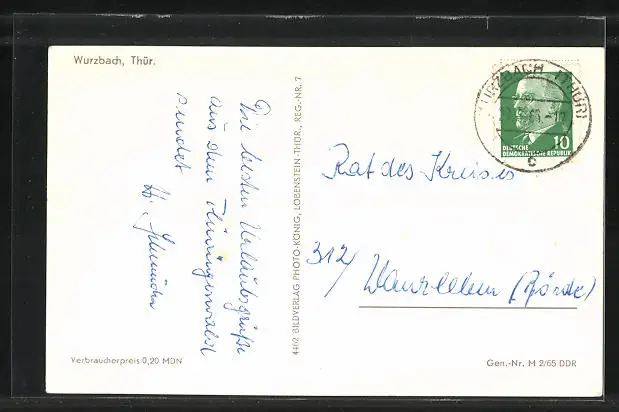 Wurzbach, Thür.
Die besten Urlaubsgrüße
aus dem Thüringerwald
sendet
H.
4462 BILDVERLAG PHOTO-KÖNIG, LOBENSTEIN THÜR., REG.-NR. 7
WURZBACH (THÜR)
c
10
DEUTSCHE
DEMOKRATISCHE REPUBLIK
Rat des Kreises
312/ Wanzleben (Börde)
Verbraucherpreis 0,20 MDN
Gen.-Nr. M 2/65 DDR